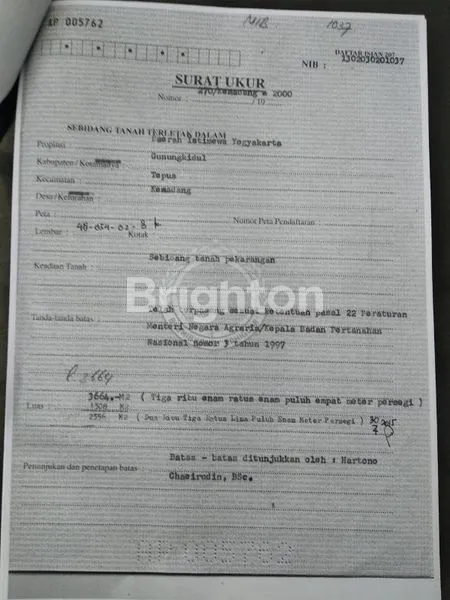 AP 005762
NIB 1037
DAFTAR ISIAN 207
NIB : 1302030201037
SURAT UKUR
Nomor : 270/Kemadang / 2000 / 19
SEBIDANG TANAH TERLETAK DALAM
Propinsi : Daerah Istimewa Yogyakarta
Kabupaten / Kotamadya : Gunungkidul
Kecamatan : Tepus
Desa / Kelurahan : Kemadang
Peta : Nomor Peta Pendaftaran :
Lembar : Kotak :
Keadaan Tanah : Sebidang tanah pekarangan
Brighton
Tanda-tanda batas : Telah terpasang sesuai ketentuan pasal 22 Peraturan
Menteri Negara Agraria/Kepala Badan Pertanahan
Nasional nomor 3 tahun 1997
3664
3664.-M2 ( Tiga ribu enam ratus enam puluh empat meter persegi )
Luas : 1308 M2
2356 M2 ( Dua Ribu Tiga Ratus Lima Puluh Enam Meter Persegi )
Penunjukan dan penetapan batas : Batas - batas ditunjukkan oleh : Hartono
Chaeirudin, BSc.